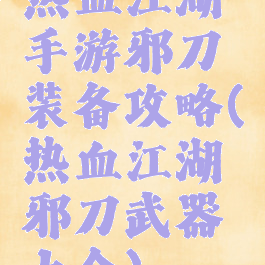 热血江湖
手游邪刀
装备攻略(
热血江湖
邪刀武器
大全)